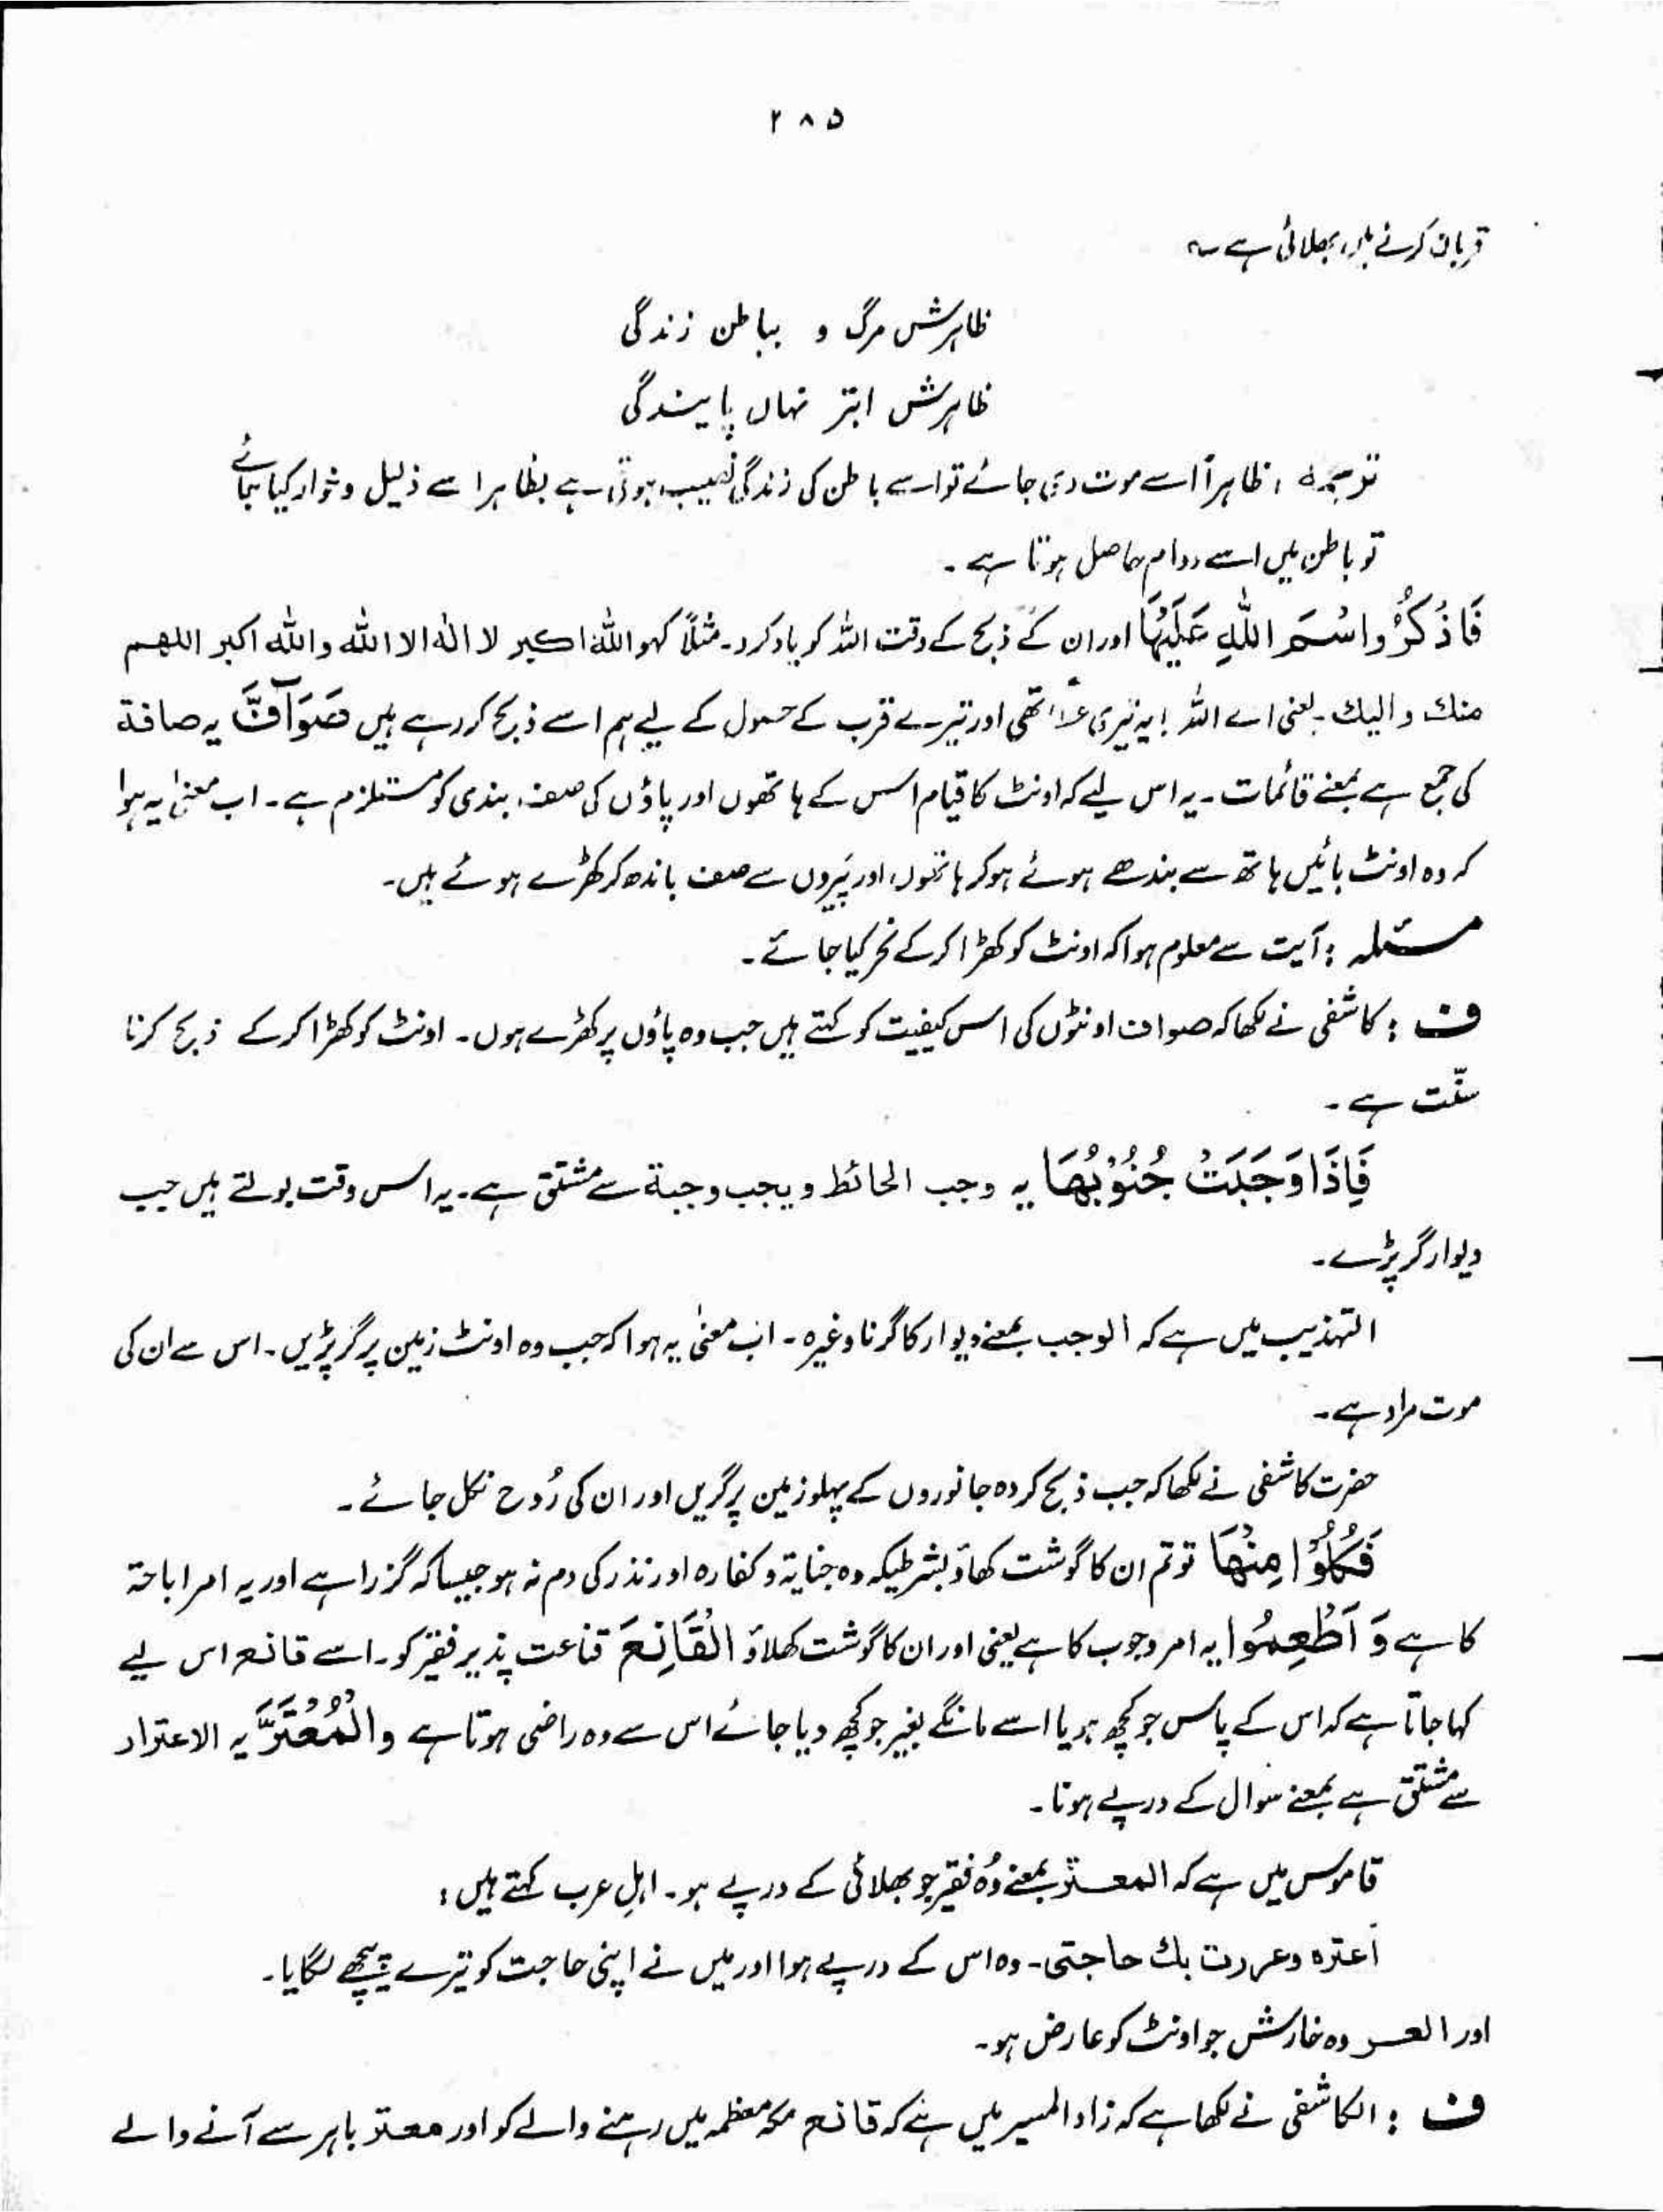 ۲۸۵
قربان کرنے میں بھلائی ہے ؎
ظاہرش مرگ و بباطن زندگی
ظاہرش ابتر نہاں پایندگی
ترجمہ: ظاہراً اسے موت دی جائے تو اسے باطن کی زندگی نصیب ہوتی ہے بظاہر اسے ذلیل و خوار کیا جائے
تو باطن میں اسے دوام حاصل ہوتا ہے۔
فَاذْكُرُوا اسْمَ اللّٰهِ عَلَيْهَا اور ان کے ذبح کے وقت اللہ کو یاد کرو۔ مثلاً کہو اللہ اکبر لا الٰہ الا اللہ واللہ اکبر اللھم
منك والیك۔ یعنی اے اللہ! یہ تیری عطا تھی اور تیرے قرب کے حصول کے لیے ہم اسے ذبح کر رہے ہیں صَوَآفَّ یہ صافة
کی جمع ہے بمعنے قائمات۔ یہ اس لیے کہ اونٹ کا قیام اس کے ہاتھوں اور پاؤں کی صف بندی کو مستلزم ہے۔ اب معنیٰ یہ ہوا
کہ وہ اونٹ بائیں ہاتھ سے بندھے ہوئے ہو کر ہاتھوں اور پَیروں سے صف باندھ کر کھڑے ہوئے ہیں۔
مسئلہ: آیت سے معلوم ہوا کہ اونٹ کو کھڑا کر کے نحر کیا جائے۔
ف: کاشفی نے لکھا کہ صواف اونٹوں کی اس کیفیت کو کہتے ہیں جب وہ پاؤں پر کھڑے ہوں۔ اونٹ کو کھڑا کر کے ذبح کرنا
سنّت ہے۔
فَاِذَا وَجَبَتْ جُنُوْبُهَا یہ وجب الحائط و یجب وجبة سے مشتق ہے۔ یہ اس وقت بولتے ہیں جب
دیوار گر پڑے۔
التہذیب میں ہے کہ الوجب بمعنے دیوار کا گرنا وغیرہ۔ اب معنیٰ یہ ہوا کہ جب وہ اونٹ زمین پر گر پڑیں۔ اس سے ان کی
موت مراد ہے۔
حضرت کاشفی نے لکھا کہ جب ذبح کردہ جانوروں کے پہلو زمین پر گریں اور ان کی رُوح نکل جائے۔
فَكُلُوْا مِنْهَا تو تم ان کا گوشت کھاؤ بشرطیکہ وہ جنایۃ و کفارہ اور نذر کی دم نہ ہو جیسا کہ گزرا ہے اور یہ امر اباحۃ
کا ہے وَ اَطْعِمُوا یہ امر وجوب کا ہے یعنی اور ان کا گوشت کھلاؤ الْقَانِعَ قناعت پذیر فقیر کو۔ اسے قانع اس لیے
کہا جاتا ہے کہ اس کے پاس جو کچھ ہو یا اسے مانگے بغیر جو کچھ دیا جائے اس سے وہ راضی ہوتا ہے والْمُعْتَرَّ یہ الاعترار
سے مشتق ہے بمعنے سوال کے درپے ہونا۔
قاموس میں ہے کہ المعترّ بمعنے وُہ فقیر جو بھلائی کے درپے ہو۔ اہلِ عرب کہتے ہیں:
اَعتره وعررت بك حاجتی۔ وہ اس کے درپے ہوا اور میں نے اپنی حاجت کو تیرے پیچھے لگایا۔
اور العر وہ خارش جو اونٹ کو عارض ہو۔
ف: الکاشفی نے لکھا ہے کہ زاد المسیر میں ہے کہ قانع مکہ معظمہ میں رہنے والے کو اور معتر باہر سے آنے والے